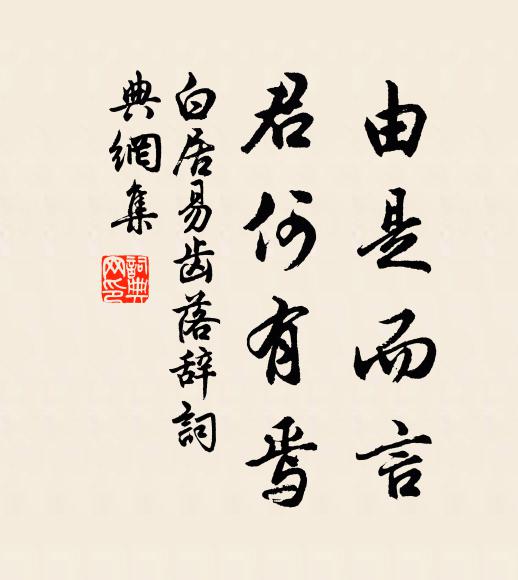 由是而言
君何有焉
白居易齿落辞詞
典網集
詞典
网印